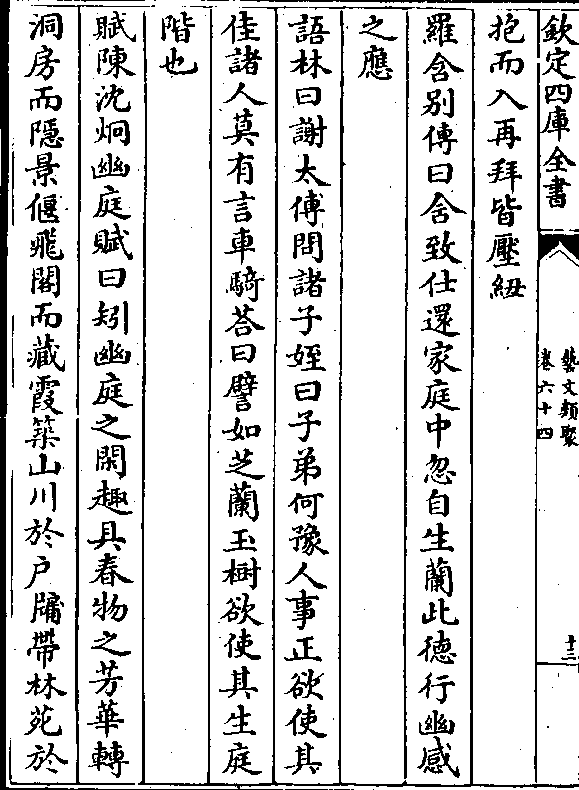 欽定四庫全書
藝文類聚
卷六十四
十三
抱而入再拜皆壓紐
羅含别傳曰含致仕還家庭中忽自生蘭此徳行幽感
之應
語林曰謝太傅問諸子姪曰子弟何豫人事正欲使其
佳諸人莫有言車騎荅曰譬如芝蘭玉樹欲使其生庭
階也
賦陳沈炯幽庭賦曰矧幽庭之閑趣具春物之芳華轉
洞房而隠景偃飛閣而藏霞築山川於户牖帶林苑於